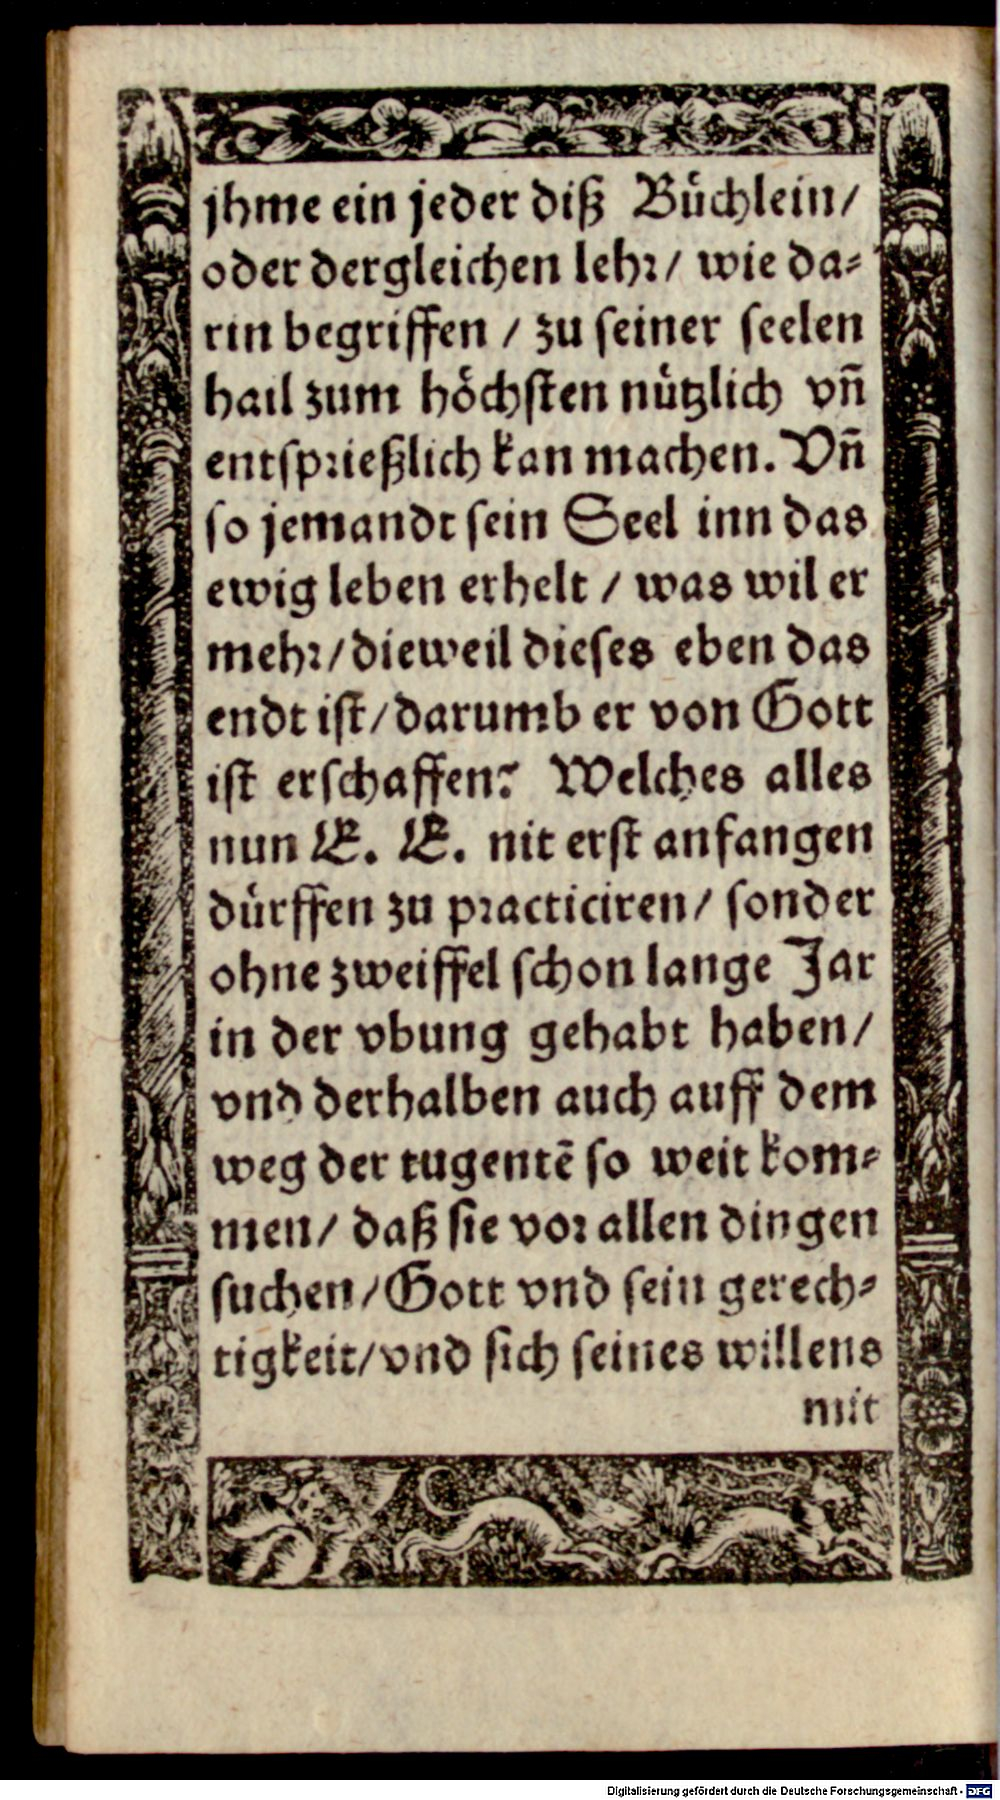 jhme ein jeder diß Büchlein/
oder dergleichen lehr/ wie da⸗
rin begriffen / zu seiner seelen
hail zum höchsten nützlich vñ
entsprießlich kan machen. Vñ
so jemandt sein Seel inn das
ewig leben erhelt / was wil er
mehr/dieweil dieses eben das
endt ist/darumb er von Gott
ist erschaffen? Welches alles
nun E. E. nit erst anfangen
dürffen zu practiciren/ sonder
ohne zweiffel schon lange Jar
in der vbung gehabt haben/
vnd derhalben auch auff dem
weg der tugentẽ so weit kom⸗
men/ daß sie vor allen dingen
suchen/Gott vnd sein gerech⸗
tigkeit/vnd sich seines willens
mit
Digitalisierung gefördert durch die Deutsche Forschungsgemeinschaft - DFG